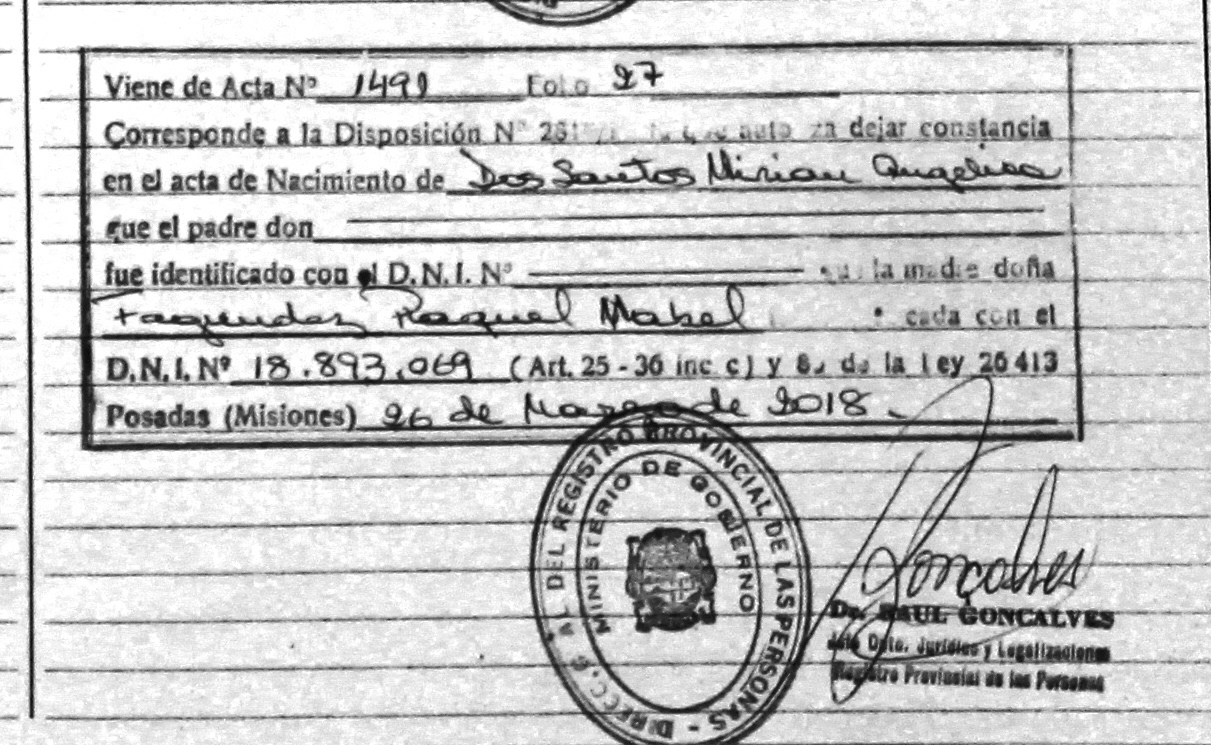 Viene de Acta Nº 1491 Folio 27
Corresponde a la Disposición Nº 281 que autoriza dejar constancia
en el acta de Nacimiento de Dos Santos Mirian Angelica
que el padre don
fue identificado con el D.N.I. Nº la madre doña
Fagundez Raquel Mabel cada con el
D.N.I. Nº 18.893.069 (Art. 25 - 36 inc c) y 8 de la Ley 26413
Posadas (Misiones) 26 de Marzo de 2018.
DIREC. G AL DEL REGISTRO PROVINCIAL DE LAS PERSONAS -
MINISTERIO DE GOBIERNO
Gonçalves
Dr. RAUL GONCALVES
Jefe Dpto. Jurídico y Legalizaciones
Registro Provincial de las Personas